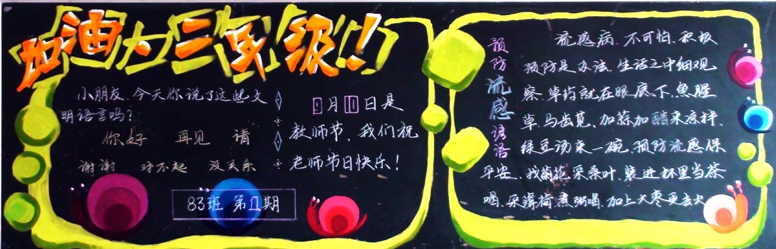 加油大三年级!!
小朋友,今天你说了这些文
明语言吗?
你好 再见 请
谢谢 对不起 没关系
83班 第1期
9月10日是
教师节,我们祝
老师节日快乐!
预防流感谚语
流感病,不可怕,积极
预防是办法,生活之中细观
察,草药就在眼底下,鱼腥
草,马齿苋,加蒜加醋来凉拌,
绿豆汤来一碗,预防流感保
平安,找菊花,采桑叶,装进杯里当茶
喝,
煮粥喝,加上大枣更去火